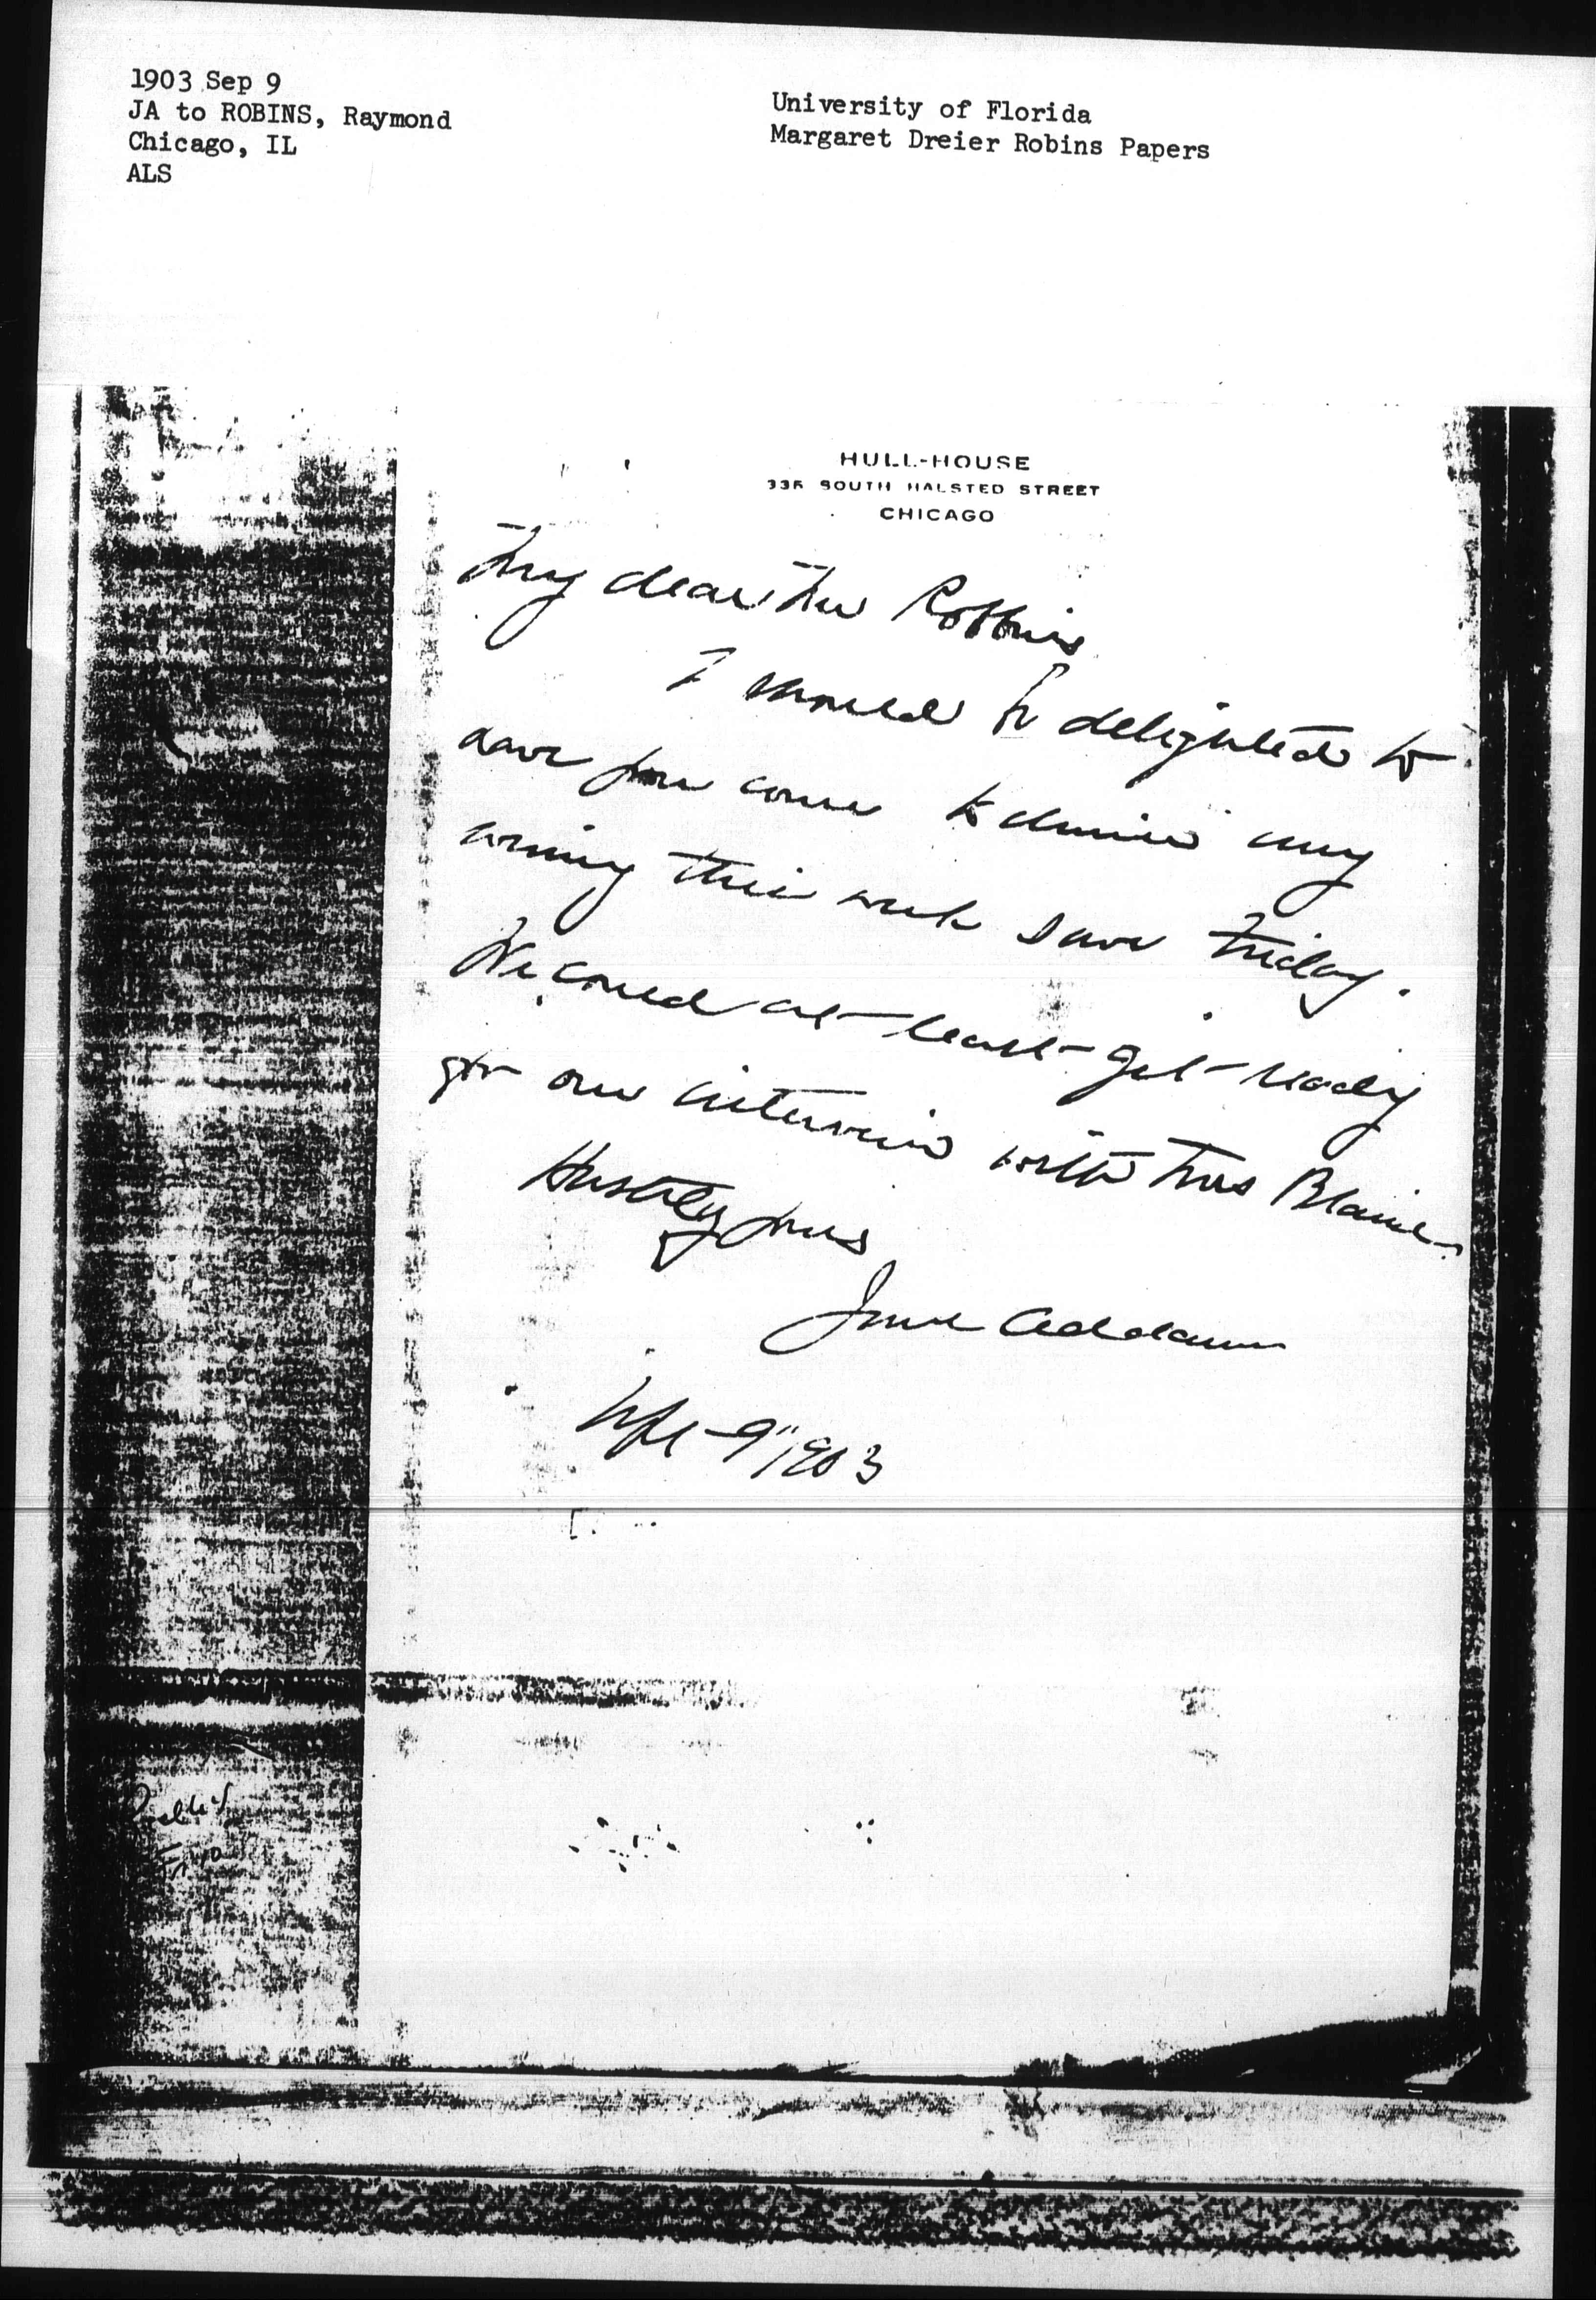 1903 Sep 9
JA to ROBINS, Raymond
Chicago, IL
ALS
University of Florida
Margaret Dreier Robins Papers
HULL-HOUSE
335 SOUTH HALSTED STREET
CHICAGO
My dear Mr Robbins
I should be delighted to
have you come to dinner any
evening this week save Friday.
We could at least get ready
for our interview with Mrs Blaine.
Hastily yours
Jane Addams
Sept 9" 1903